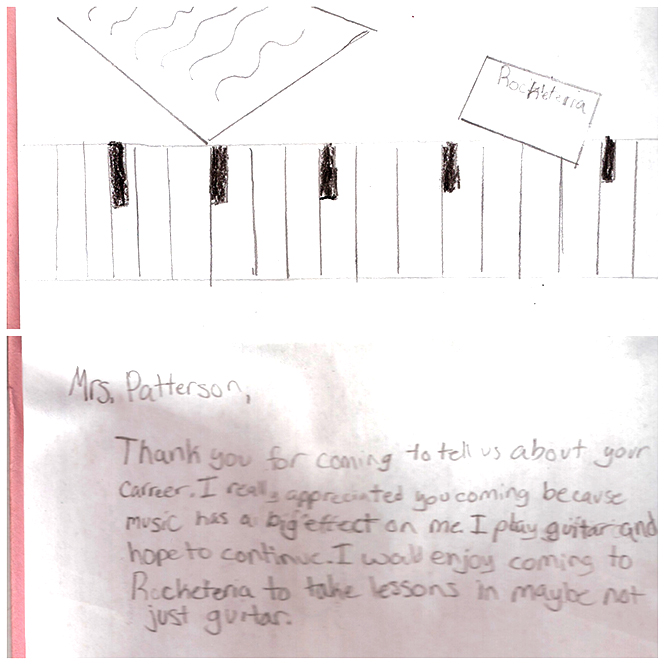 Rocketeria
Mrs. Patterson,
Thank you for coming to tell us about your
carreer. I really appreciated you coming because
music has a big effect on me. I play guitar and
hope to continue. I would enjoy coming to
Rocketeria to take lessons in maybe not
just guitar.